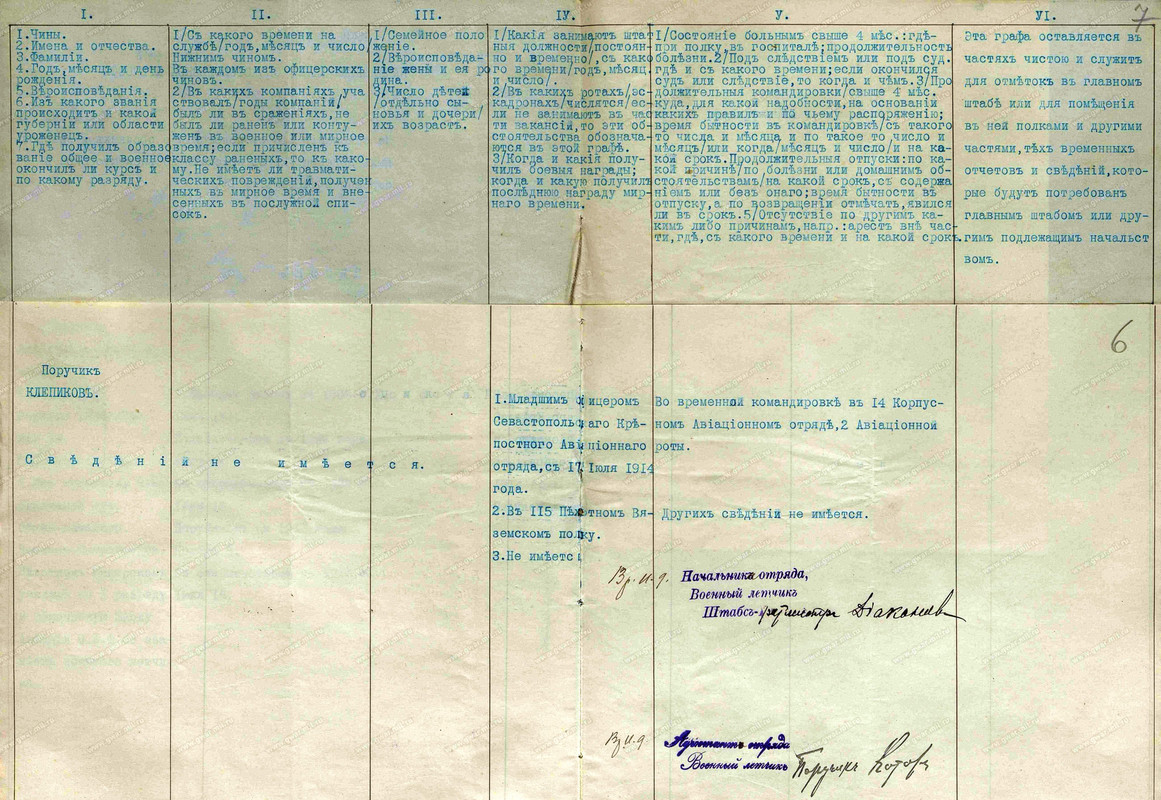 I.
II.
III.
IУ.
У.
УI.
7
I.Чины.
2.Имена и отчества.
3.Фамиліи.
4.Годъ,мѣсяцъ и день
рожденія.
5.Вѣроисповѣданія.
6.Изъ какого званія
происходитъ и какой
губерніи или области
уроженецъ.
7.Гдѣ получилъ образо
ваніе общее и военное
окончилъ ли курсъ и
по какому разряду.
I/Съ какого времени на
службѣ/годъ,мѣсяцъ и число/
Нижнимъ чиномъ.
Въ каждомъ изъ офицерскихъ
чиновъ.
2/Въ какихъ компаніяхъ уча
ствовалъ/годы компаній/
былъ ли въ сраженіяхъ,не
былъ ли раненъ или конту-
женъ въ военное или мирное
время;если причисленъ къ
классу раненыхъ,то къ како-
му.Не имѣетъ ли травмати-
ческихъ поврежденій,получен
ныхъ въ мирное время и вне-
сенныхъ въ послужной спи-
сокъ.
I/Семейное поло
женіе.
2/Вѣроисповѣда-
ніе жены и ея ро
дина.
3/Число дѣтей
/отдѣльно сы-
новья и дочери/
ихъ возрастъ.
I/Какія занимаютъ штат
ныя должности,постоян-
но и временно/,съ како
го времени/годъ,мѣсяцъ
и число/.
2/Въ какихъ ротахъ/эс-
кадронахъ/числятся/ес-
ли не занимаютъ въ час
ти вакансій,то эти об-
стоятельства обознача-
ются въ этой графѣ.
3/Когда и какія полу-
чилъ боевыя награды;
когда и какую получилъ
послѣднюю награду мир-
наго времени.
I/Состояніе больнымъ свыше 4 мѣс.:гдѣ-
при полку,въ госпиталѣ;продолжительность
болѣзни.2/Подъ слѣдствіемъ или подъ суд.
гдѣ и съ какого времени;если окончился
судъ или слѣдствіе,то когда и чѣмъ.3/Про
должительныя командировки/свыше 4 мѣс.
куда,для какой надобности,на основаніи
какихъ правилъ и по чьему распоряженію;
время бытности въ командировкѣ/съ такого
то числа и мѣсяца и по такое то число и
мѣсяцъ/или когда/мѣсяцъ и число/и на ка-
кой срокъ.Продолжительныя отпуски:по ка-
кой причинѣ/по болѣзни или домашнимъ об-
стоятельствамъ/на какой срокъ,съ содержа
ніемъ или безъ онаго;время бытности въ
отпуску,а по возвращеніи отмѣчать,явился
ли въ срокъ.5/Отсутствіе по другимъ ка-
кимъ либо причинамъ,напр.:арестъ внѣ час-
ти,гдѣ,съ какого времени и на какой срокъ.
Эта графа оставляется въ
частяхъ чистою и служитъ
для отмѣтокъ въ главномъ
штабѣ или для помѣщенія
въ ней полками и другими
частями,тѣхъ временныхъ
отчетовъ и свѣдѣній,кото-
рые будутъ потребованъ
главнымъ штабомъ или дру-
гимъ подлежащимъ начальст
вомъ.
6
Поручикъ
КЛЕПИКОВЪ.
Свѣдѣній не имѣется.
I.Младшимъ офицеромъ
Севастопольскаго Крѣ-
постного Авіаціоннаго
отряда,съ 17 Іюля 1914
года.
2.Въ 115 Пѣхотномъ Вя-
земскомъ полку.
3.Не имѣетъ
Во временной командировкѣ въ I4 Корпус-
номъ Авіаціонномъ отрядѣ,2 Авіаціонной
роты.
Другихъ свѣдѣніи не имѣется.
Вр. и. д. Начальника отряда,
Военный летчикъ
Штабсъ-ротмистръ Діаконовъ
Вр и д Адъютантъ отряда
Военный летчикъ Поручикъ Котовъ